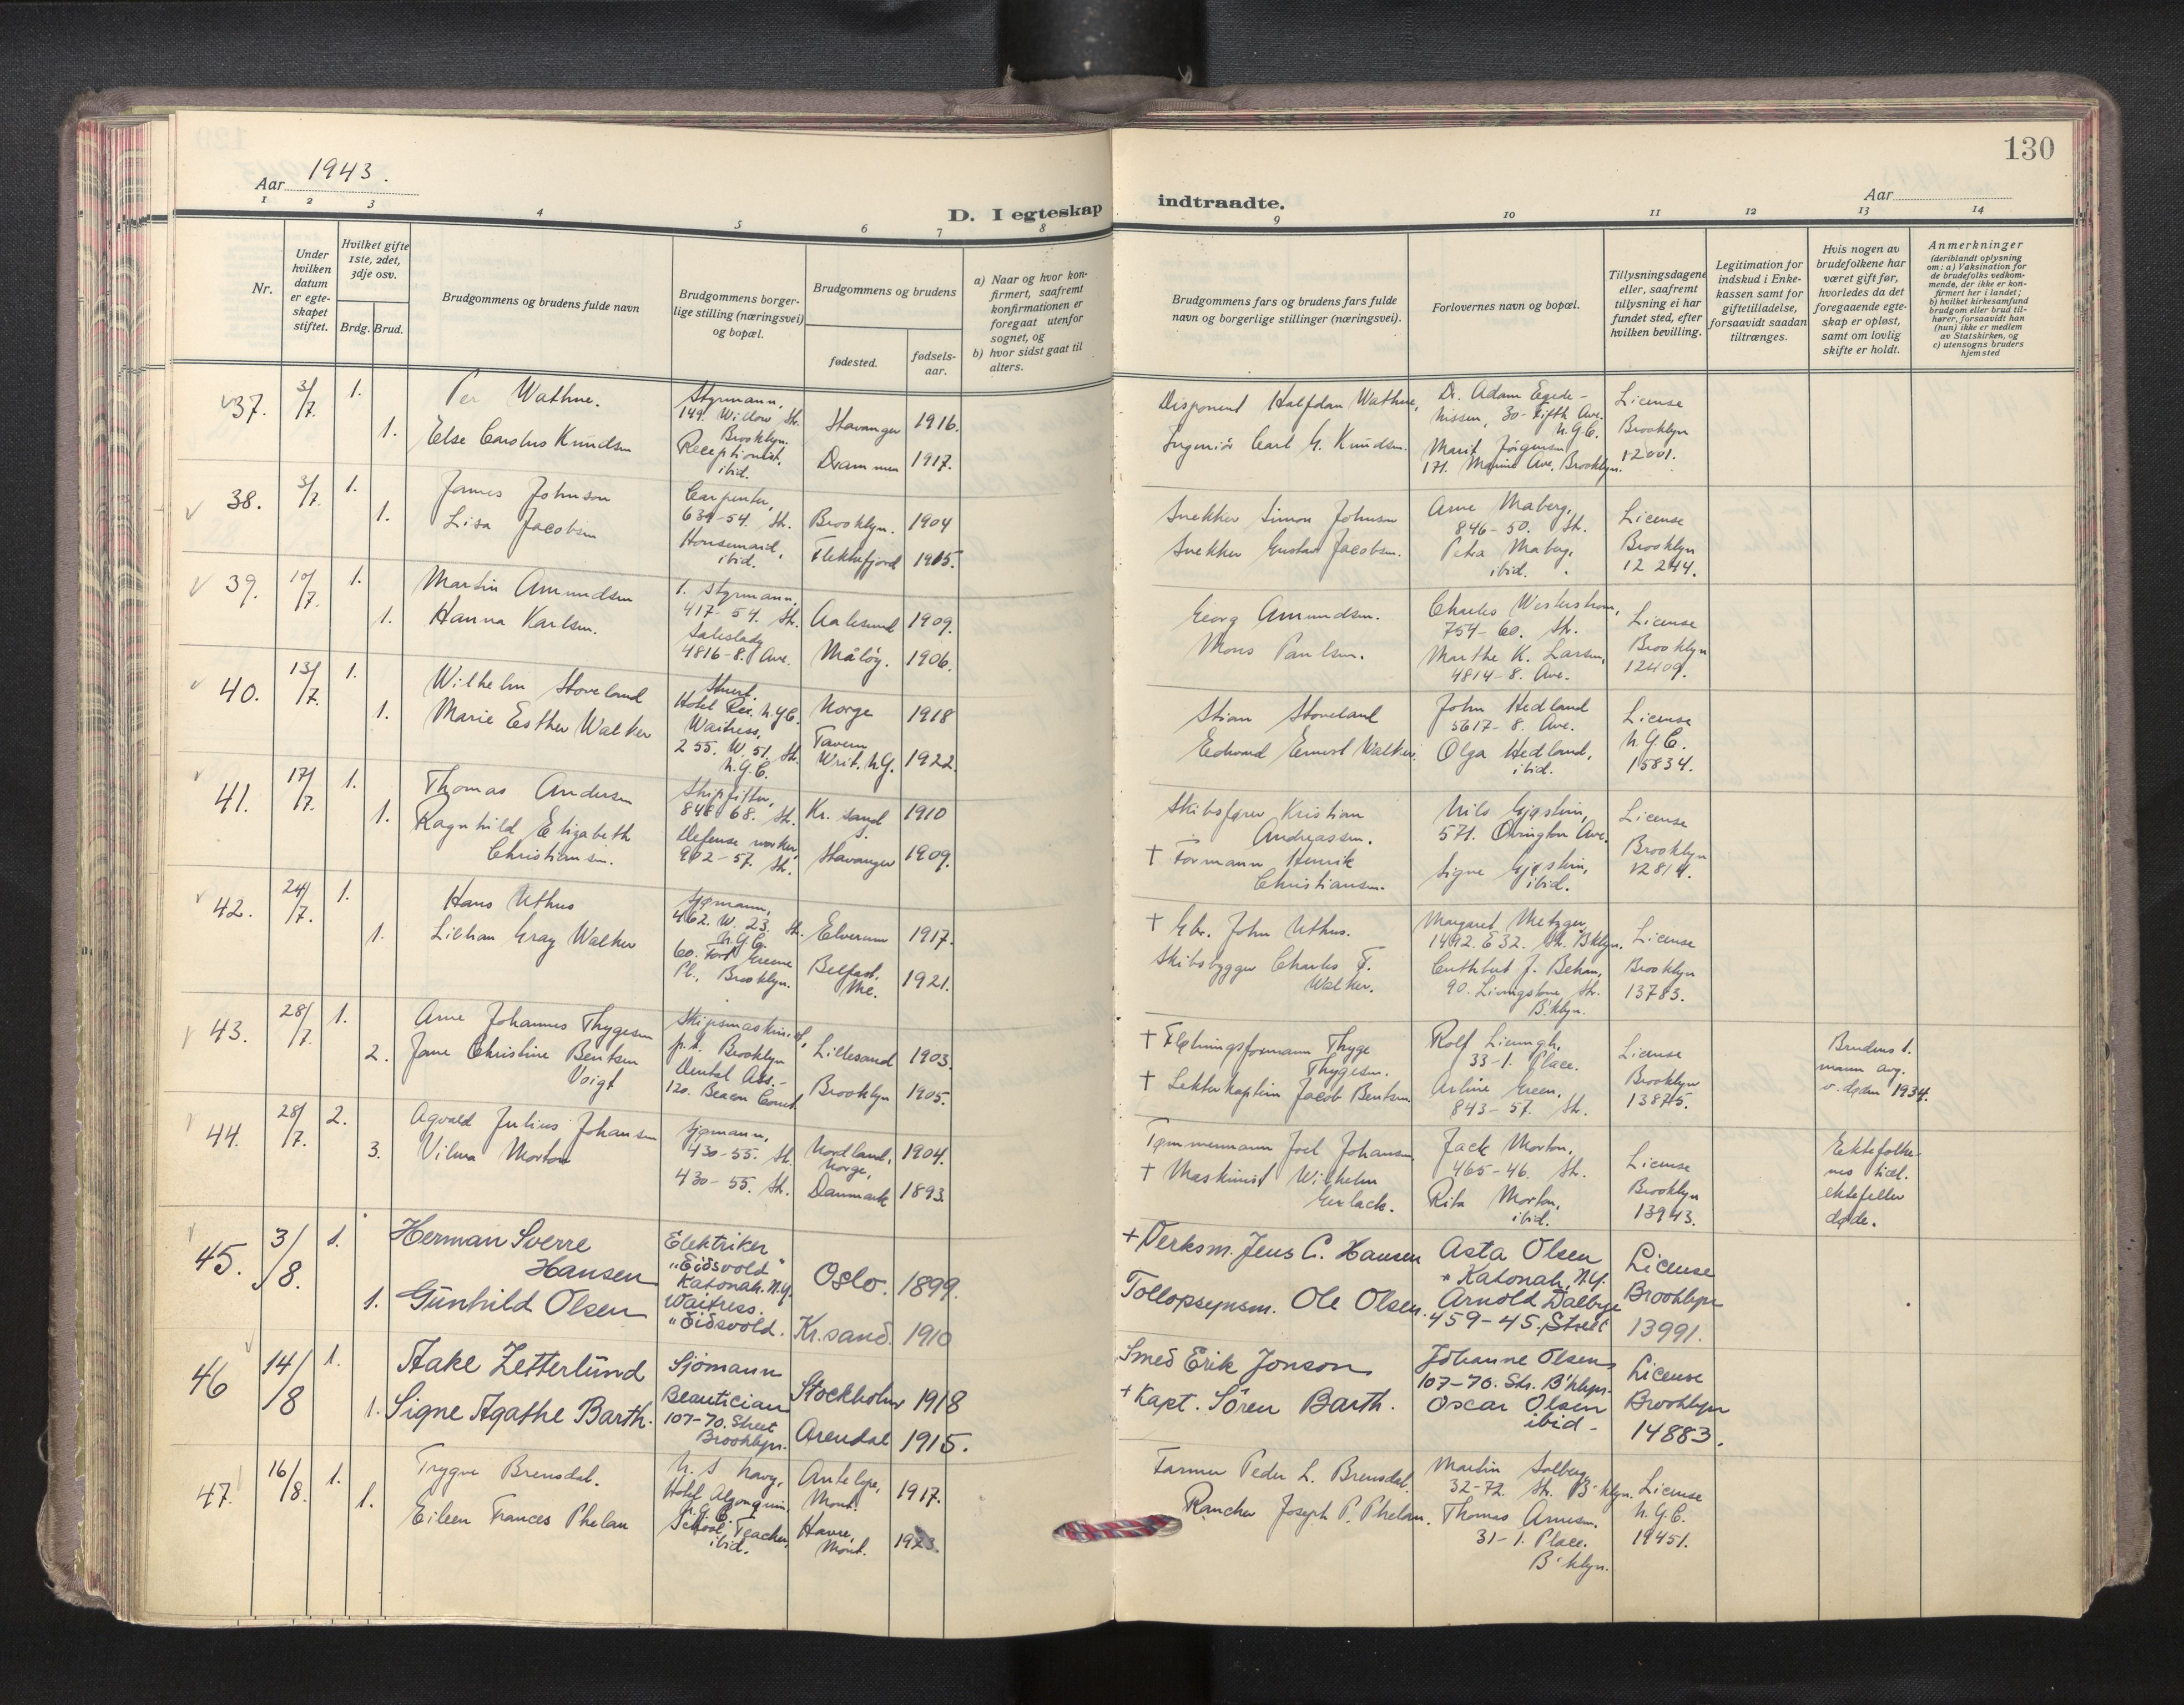 130
Aar 1943.
Aar
D. I egteskap indtraadte.
1 2 3 4 5 6 7 8 9 10 11 12 13 14
Nr.
Under hvilken datum er egteskapet stiftet.
Hvilket gifte 1ste, 2det, 3dje osv.
Brdg. Brud.
Brudgommens og brudens fulde navn
Brudgommens borgerlige stilling (næringsvei) og bopæl.
Brudgommens og brudens
fødested.
fødselsaar.
a) Naar og hvor konfirmert, saafremt konfirmationen er foregaat utenfor sognet, og
b) hvor sidst gaat til alters.
Brudgommens fars og brudens fars fulde navn og borgerlige stillinger (næringsvei).
Forlovernes navn og bopæl.
Tillysningsdagene eller, saafremt tillysning ei har fundet sted, efter hvilken bevilling.
Legitimation for indskud i Enkekassen samt for giftetilladelse, forsaavidt saadan tiltrænges.
Hvis nogen av brudefolkene har været gift før, hvorledes da det foregaaende egteskap er opløst, samt om lovlig skifte er holdt.
Anmerkninger
(deriblandt oplysning om: a) Vaksination for de brudefolks vedkommende, der ikke er konfirmert her i landet; b) hvilket kirkesamfund brudgom eller brud tilhører, forsaavidt han (hun) ikke er medlem av Statskirken, og c) utensogns bruders hjemsted
37. 3/7. 1.
Per Wathne.
Styrmann,
149. Willow Str.
Brooklyn.
Stavanger 1916.
Disponent Halfdan Wathne,
Dr. Adam Egede-
Nissen, 30-Fifth Ave.
N.Y.C.
License
Brooklyn
12001.
1. Else Carolus Knudsen
Receptionist,
ibid.
Drammen 1917.
Ingeniör Carl G. Knudsen.
Marit Jörgensen
171. Marine Ave, Brooklyn.
38. 3/7. 1.
James Johnson
Carpenter,
639-54. Str.
Brooklyn. 1904
Snekker Simon Johnson
Arne Maberg,
846-50. Str.
License
Brooklyn
12 244.
1. Lisa Jacobsen
Housemaid,
ibid.
Flekkefjord 1905.
Snekker Gustav Jacobsen.
Petra Maberg,
ibid.
39. 10/7. 1.
Martin Amundsen
1. Styrmann,
417-54. Str.
Aalesund 1909.
Georg Amundsen.
Charles Westerstrom,
754-60. Str.
License
Brooklyn
12409.
1. Hanna Karlsen.
Saleslady
4816-8. Ave.
Måløy. 1906.
Mons Paulsen.
Marthe K. Larsen,
4814-8. Ave.
40. 13/7. 1.
Wilhelm Stoveland
Stuert.
Hotel Rex. N.Y.C.
Norge 1918
Stian Stoveland
John Hedland
5617-8. Ave.
License
N.Y.C.
15834.
1. Marie Esther Walker
Waitress,
255. W. 51. Str.
N.Y.C.
1922.
Edward Ernest Walker.
Olga Hedland,
ibid.
41. 17/7. 1.
Thomas Andersen
Shipfitter,
848 68. Str.
Kr. sand
S.
1910
Skibsfører Kristian
Andreassen.
Nils Gjøstein,
571. Ovington Ave.
License
Brooklyn
12814.
1. Ragnhild Elizabeth
Christiansen.
Defense worker,
902-57. Str.
Stavanger 1909.
† Formann Henrik
Christiansen.
Signe Gjøstein,
ibid.
42. 24/7. 1.
Hans Uthus
Sjømann,
462. W. 23. Str.
N.Y.C.
Elverum 1917.
† Gbr. John Uthus.
Margaret Metzger,
1492. E 32. Str. Bklyn.
License
Brooklyn
13783.
1. Lillian Gray Walker
60. Fort Greene
Pl., Brooklyn.
Belfast,
Me.
1921.
Skibsbygger Charles F.
Walker.
Cuthbert J. Behan,
90. Livingstone Str.
B'klyn.
43. 28/7. 1.
Arne Johannes Thygesen
Skipsmaskinist,
p.t. Brooklyn
Lillesand 1903.
† Fløtningsformann Thyge
Thygesen.
Rolf Liungh,
33-1. Place.
License
Brooklyn
13875.
Brudens 1.
mann avg.
v. døden 1934.
2. Jane Christine Bentsen
Voigt
Dental Ass.-
120. Beacon Court
Brooklyn 1905.
† Lekterkaptein Jacob Bentsen
Arline Green,
843-57. Str.
44. 28/7. 2.
Agvald Julius Johansen
Sjømann,
430-55. St.
Nordland,
Norge,
1904.
Tømmermann Joel Johansen
Jack Morton,
465-46. Str.
License
Brooklyn
13943.
Ektefolke-
nes tidl.
ektefeller
døde.
3. Vilma Morton
430-55. Str.
Danmark 1893.
† Maskinist Wilhelm
Gerlach.
Rita Morton,
ibid.
45. 3/8. 1.
Herman Sverre
Hansen
Elektriker
"Eidsvold"
Katonah. N.Y.
Oslo. 1899.
+ Verksm. Jens C. Hansen
Asta Olsen
Katonah, N.Y.
License
Brooklyn
13991.
1. Gunhild Olsen
Waitress.
"Eidsvold.
Kr.sand. 1910
Tollopsynsm. Ole Olsen.
Arnold Dalbye
459-45. Street
46 14/8 1.
Aake Zetterlund
Sjömann
Stockholm 1918
Smed Erik Jonson
Johanne Olsen
107-70. Str. B'klyn.
License
Brooklyn
14883.
1. Signe Agathe Barth.
Beautician
107-70. Street
Brooklyn.
Arendal 1915.
+ Kapt. Sören Barth.
Oscar Olsen
ibid-
47. 16/8. 1.
Trygve Brensdal.
U. S Navy,
Hotel Algonquin,
N.Y.C.
Antelope,
Mont.
1917.
Farmer Peder L. Brensdal.
Martin Solberg,
32-72. Str. B'klyn.
License
N.Y.C.
19451.
1. Eileen Frances Phelan
School Teacher,
ibid.
Havre,
Mont.
1923.
Rancher Joseph P. Phelan.
Thomas Arnesen.
31-1. Place.
B'klyn.